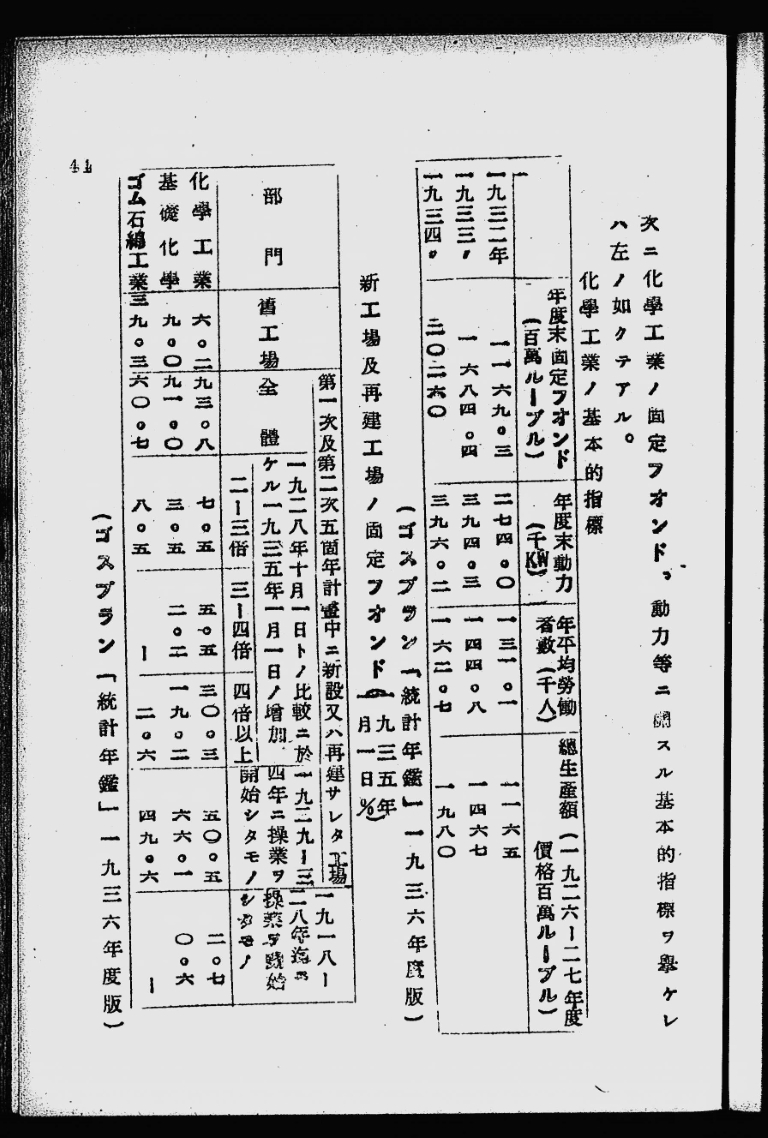 次ニ化學工業ノ固定フオンド、動力等ニ關スル基本的指標ヲ擧ケレ
ハ左ノ如クテアル。
化學工業ノ基本的指標
年度末固定フオンド
(百萬ルーブル)
年度末動力
(千KW)
年平均勞働
者數(千人)
總生產額(一九二六ー二七年度
價格百萬ルーブル)
一九三二年 一一六九。三 二七四。〇 一三一。一 一一六五
一九三三〃 一六八四。四 三九四。三 一四四。八 一四六七
一九三四〃 二〇二六〇 三九六。二 一六二。七 一九八〇
(ゴスプラン「統計年鑑」一九三六年度版)
新工場及再建工場ノ固定フオンド(一九三五年一月一日%)
部門
舊工場
第一次及第二次五箇年計畫中ニ新設又ハ再建サレタ工場
全體
一九二八年十月一日トノ比較ニ於
ケル一九三五年一月一日ノ增加
二ー三倍
三ー四倍
四倍以上
一九二九ー三
四年ニ操業ヲ
開始シタモノ
一九一八ー
二八年迄ニ
操業ヲ開始
シタモノ
化學工業 六。二 九三。八 七。五 五。五 三〇。三 五〇。五 二。七
基礎化學 九。〇 九一。〇 三。五 二。二 一九。二 六六。一 〇。六
ゴム石綿工業 三九。三 六〇。七 八。五 ー 二。六 四九。六 ー
(ゴスプラン「統計年鑑」一九三六年度版)
41